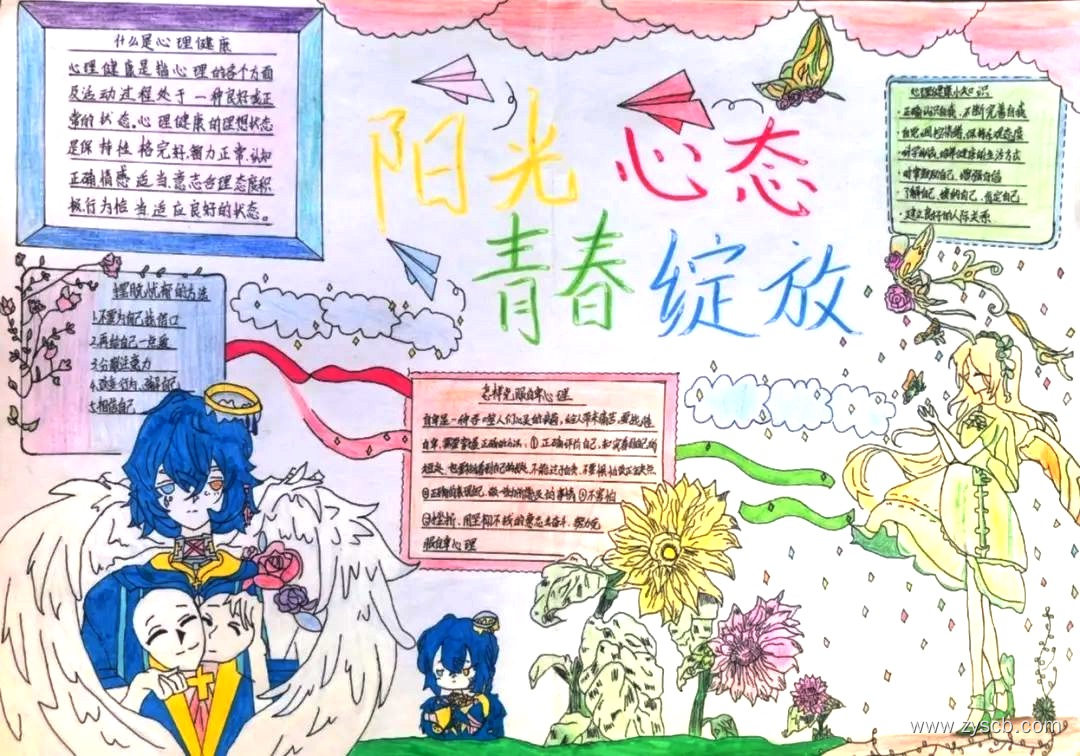 什么是心理健康
心理健康是指心理的各个方面
及活动过程处于一种良好或正
常的状态。心理健康的理想状态
是保持性格完好、智力正常、认知
正确、情感适当、意志合理、态度积
极、行为恰当、适应良好的状态。
阳光心态
青春绽放
心理健康小知识
·正确认识自我，不断完善自我
·自觉调控情绪，保持乐观态度
·科学
健康的生活方式
·时常鼓励自己，增强自信
·了解自己、接纳自己、肯定自己
·建立良好的人际关系
摆脱忧郁的方法
1.不要为自己找借口
2.再给自己一些
3.分散注意力
4.改变行为、
5.相信自己
怎样克服自卑心理
自卑是一种
给人带来痛苦，要战胜
自卑，需要掌握正确的方法：①正确评价自己，
短处，也要
②正确的表现自己，做一些力所能及的事情③不害怕
挫折，用坚韧不拔的意志去奋斗，努力克
服自卑心理
www.zyscb.com